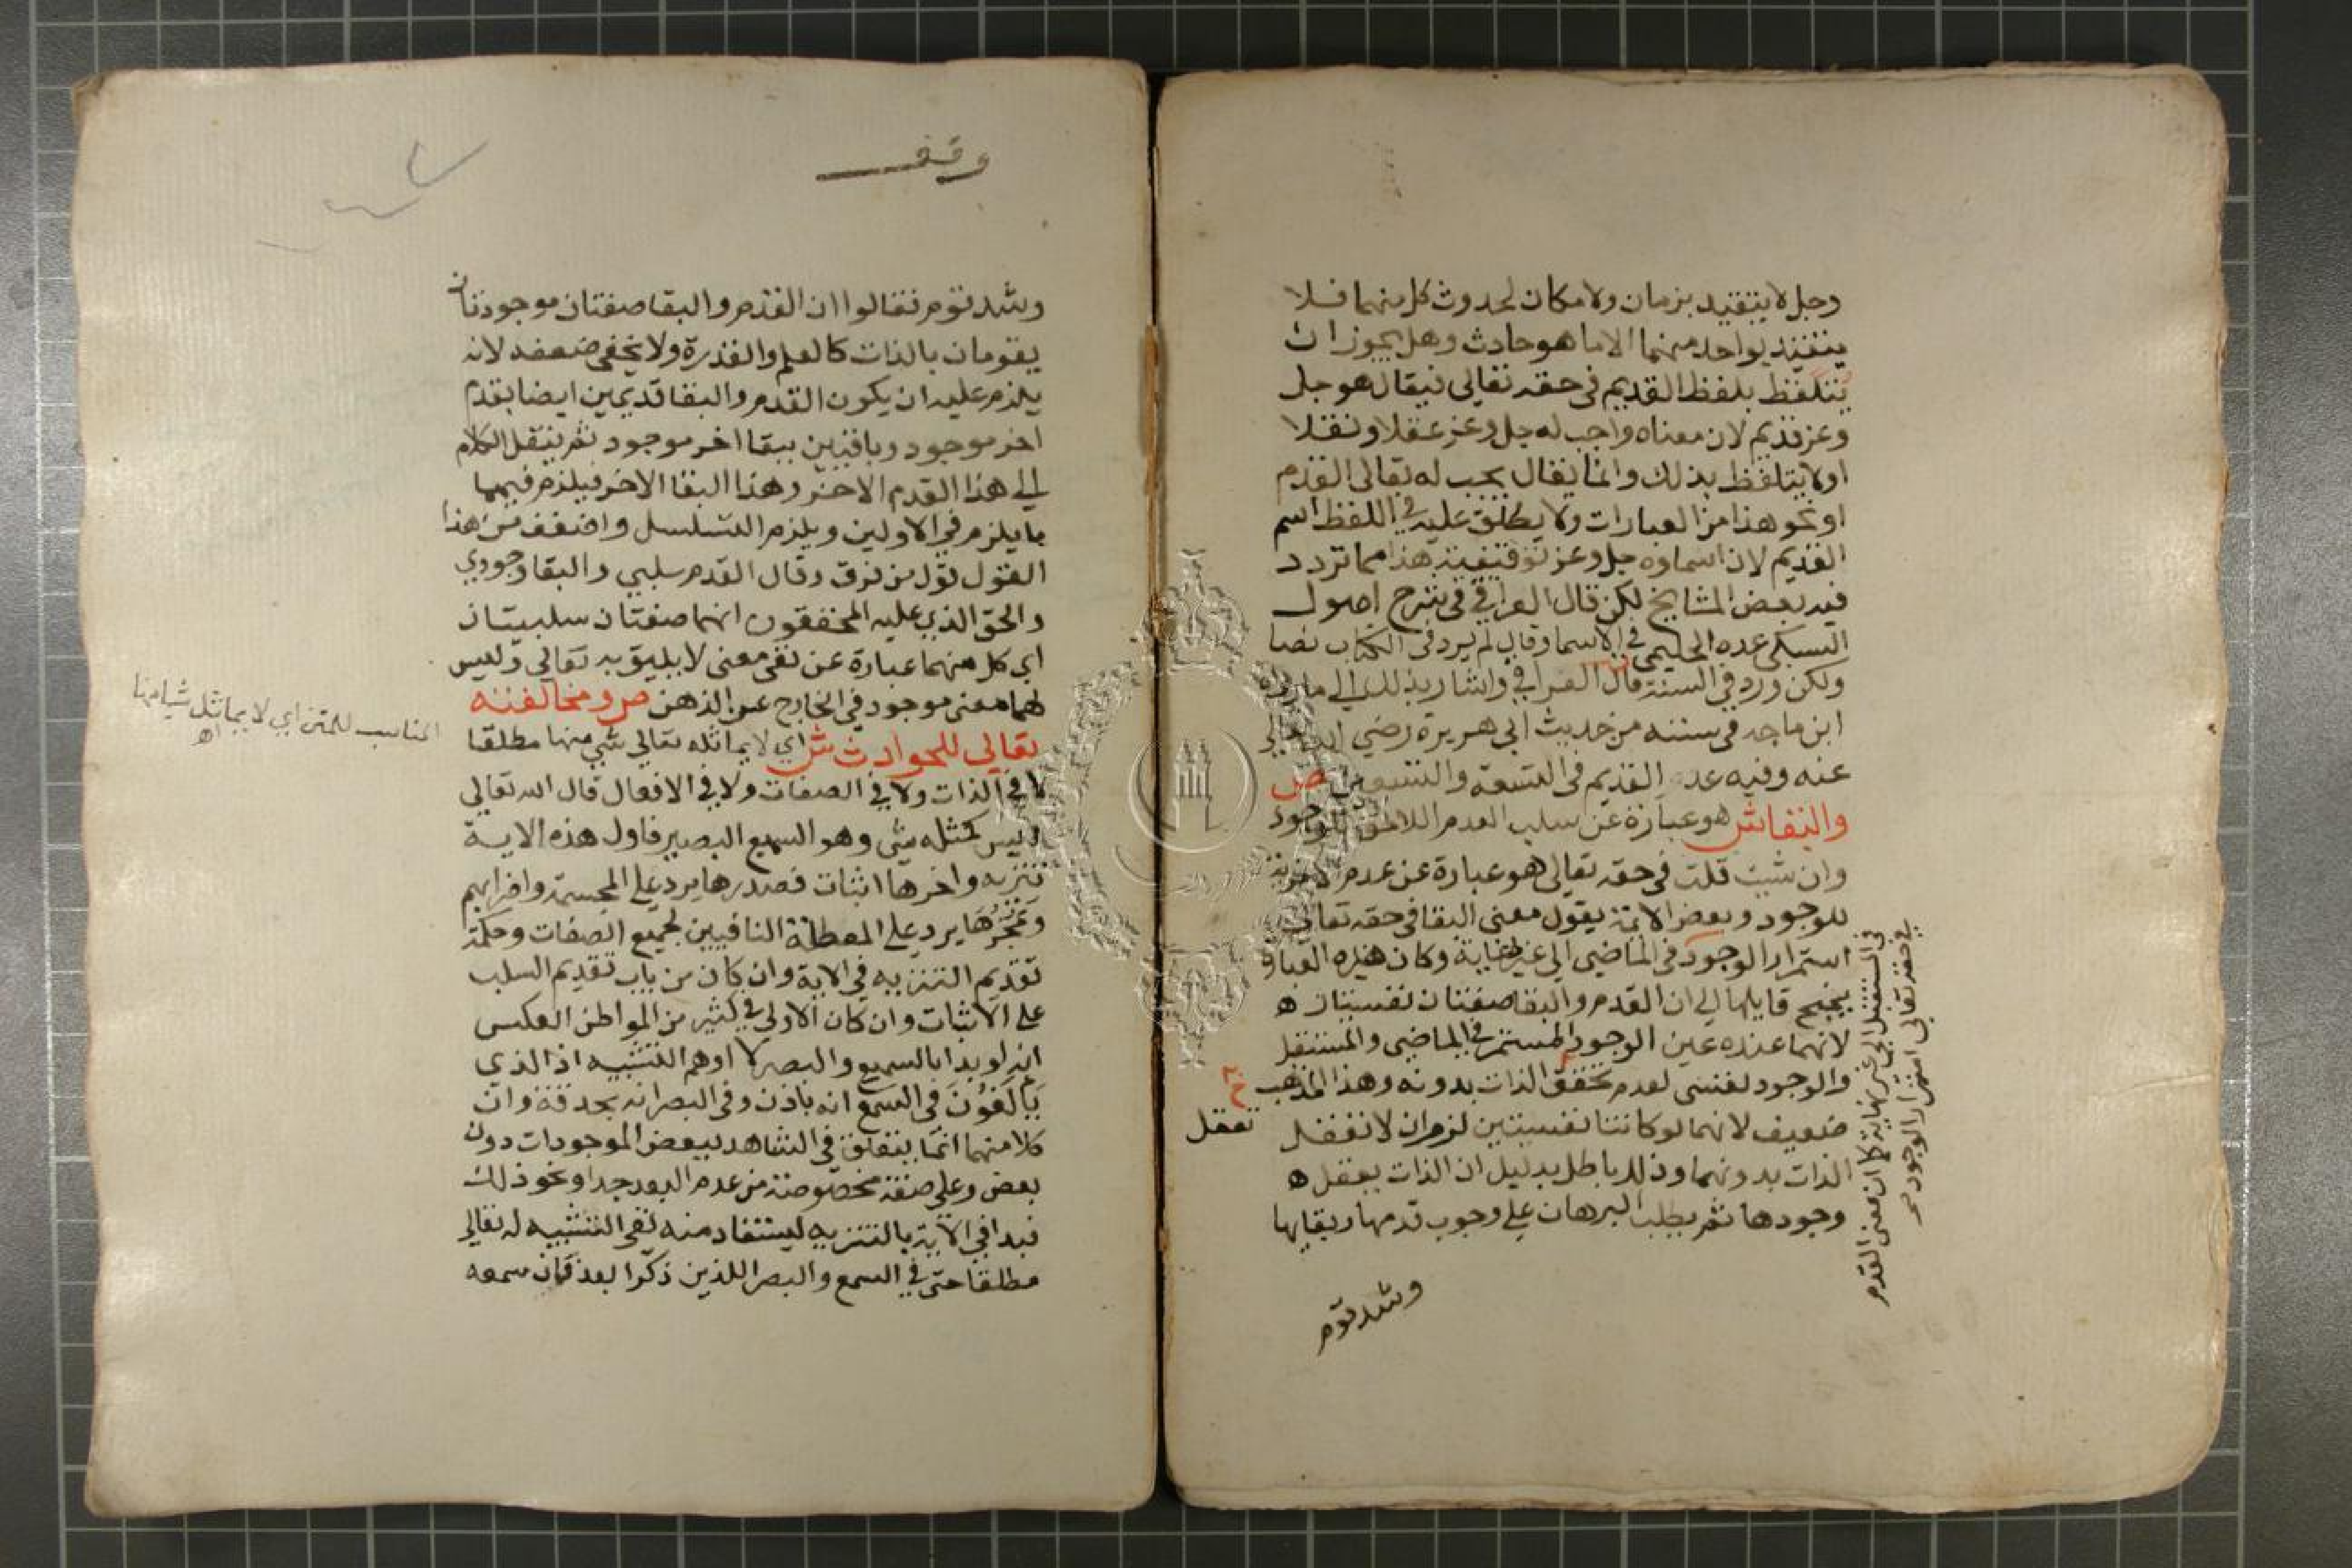 وجل لا يتقيد بزمان ولا مكان لحدوث كل منهما فلا
يتقيد بواحد منهما الا ما هو حادث وهل يجوز ان
يتلفظ بلفظ القديم في حقه تعالى فيقال هو جل
وعز قديم لان معناه واجب له جل وعز عقلا ونقلا
او لا يتلفظ بذلك وانما يقال يجب له تعالى القدم
او نحو هذا من العبارات ولا يطلق عليه في اللفظ اسم
القديم لان اسماوه جل وعز توقيفية هذا مما تردد
فيه بعض المشايخ لكن قال العراقي في شرح اصول
السبكي عده الحليمي في الاسما وقال لم يرد في الكتاب نصا
ولكن ورد في السنة قال العراقي واشار بذلك الي ما رواه
ابن ماجه في سننه من حديث ابي هريرة رضي الله تعالي
عنه وفيه عد القديم في التسعة والتسعين ص
والبقا ش هو عبارة عن سلب العدم اللاحق للوجود
وان شيت قلت في حقه تعالى هو عبارة عن عدم الاخرية
للوجود وبعض الايمة يقول معنى البقا في حقه تعالي
استمرار الوجود في الماضي الي غير نهاية وكان هذه العبارة
يجنح قايلها الي ان القدم والبقا صفتان نفسيتان ه
لانهما عنده عين الوجود المستمر في الماضي والمستقبل
والوجود نفسي لعدم تحقق الذات بدونه وهذا المذهب
ضعيف لانهما لو كانتا نفسيتين لزم ان لا تعقل
تعقل
الذات بدونهما وذلك باطل بدليل ان الذات يعقل ه
وجودها ثم يطلب البرهان علي وجوب قدمها وبقايها
وشد قوم
في المستقبل الي غير نهاية كما ان معنى القدم
في حقه تعالى استمرار الوجود
وقف
وشد قوم فقالوا ان القدم والبقا صفتان موجودتان
يقومان بالذات كالعلم والقدرة ولا يخفي ضعفه لانه
يلزم عليه ان يكون القدم والبقا قديمين ايضا بقدم
اخر موجود وباقيين ببقا اخر موجود ثم ينقل الكلام
الي هذا القدم الاخر وهذا البقا الاخر فيلزم فيهما
ما يلزم في الاولين ويلزم التسلسل واضعف من هذا
القول قول من فرق وقال القدم سلبي والبقا وجودي
والحق الذي عليه المحققون انهما صفتان سلبيتان
اي كل منهما عبارة عن نفي معنى لا يليق به تعالي وليس
لهما معنى موجود في الخارج عن الذهن ص ومخالفته
تعالي للحوادث ش اي لا يماثله تعالي شي منها مطلقا
لا في الذات ولا في الصفات ولا في الافعال قال الله تعالي
ليس كمثله شي وهو السميع البصير فاول هذه الاية
تنزيه واخرها اثبات فصدرها يرد علي المجسمة واضرابهم
وعجزها يرد علي المعطلة النافيين لجميع الصفات وحكمة
تقديم التنزيه في الاية وان كان من باب تقديم السلب
علي الاثبات وان كان الاولي في كثير من المواطن العكس
انه لو بدا بالسميع والبصير لاوهم التشبيه اذ الذي
يالفون في السمع انه باذن وفي البصر انه بحدقة وان
كلا منهما انما يتعلق في الشاهد ببعض الموجودات دون
بعض وعلي صفة مخصوصة من عدم البعد جدا ونحو ذلك
فبدا في الاية بالتنزيه ليستفاد منه نفي التشبيه له تعالي
مطلقا حتى في السمع والبصر اللذين ذكرا بعد فان سمعه
المناسب للمتن اي لا يماثل شيا منها
اه